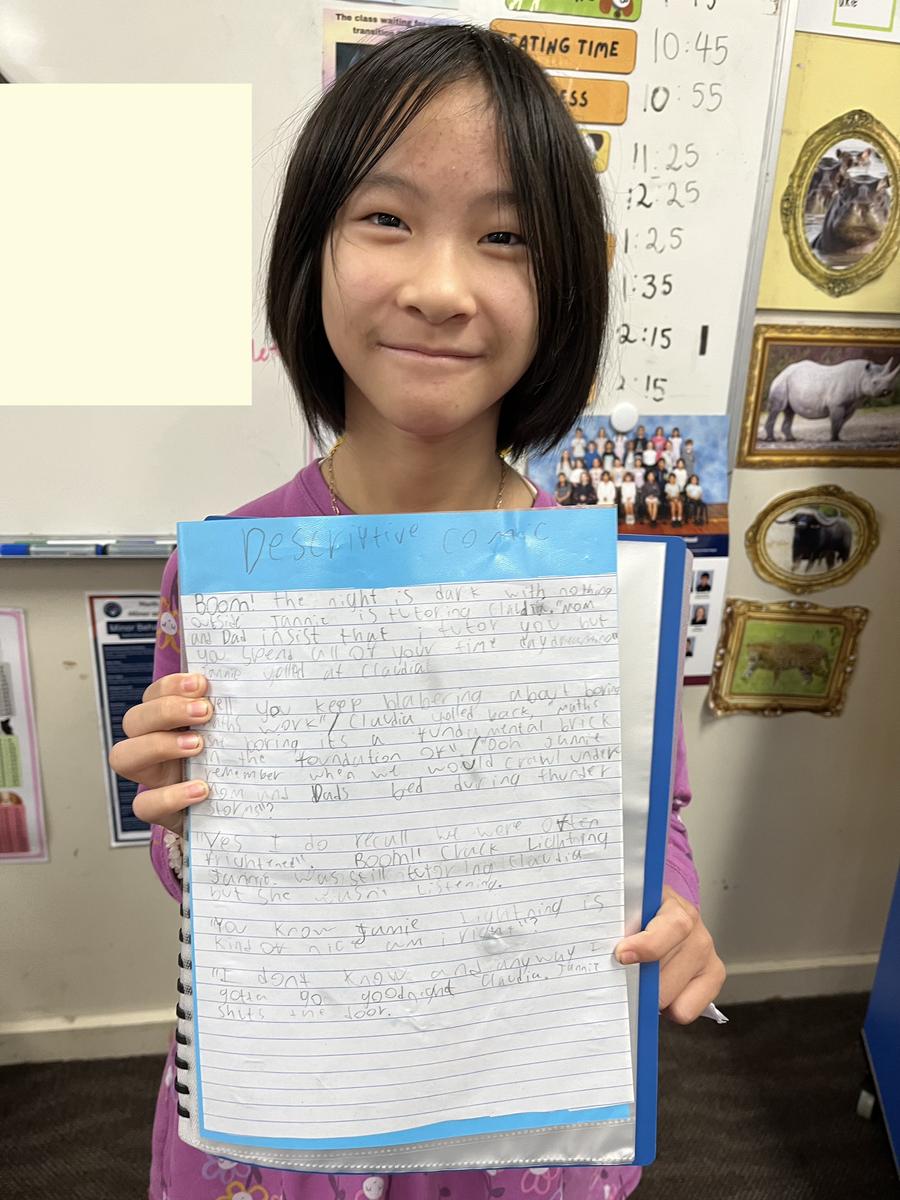 The class waiting for
transition
EATING TIME
ESS
10:45
10:55
11:25
12:25
1:25
1:35
2:15
2:15
Minor
Descriptive comic
BOOM! the night is dark with nothing
outside Jannie is tutoring Claudia. "Mom
and Dad insist that i tutor you but
you spend all of your time daydreaming"
Jannie yelled at Claudia!
well you keep blabering about boring
maths work!" Claudia yelled back. maths
isnt boring its a fundimental brick
in the foundation of" "Ooh Jannie
remember when we would crawl under
Mom and Dads bed during thunder
storms"?
"Yes I do recall we were often
frightened". Boom!! Crack Lightning
Jannie. was still tutoring Claudia
but she wasnt listening.
"You know Jannie Lightning is
kind of nice am i right"?
"I dont know and anyway I
gotta go goodnight Claudia. Jannie
shuts the door.